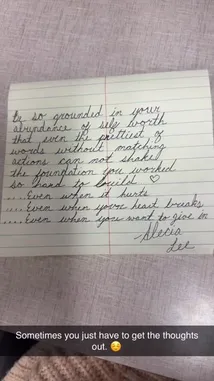 Be so grounded in your
abundance of self worth
that even the prettiest of
words without matching
actions can not shake
the foundation you worked
so hard to build ♡
....Even when it hurts
....Even when your heart breaks
....Even when you want to give in
Lee
Sometimes you just have to get the thoughts
out. ☺️